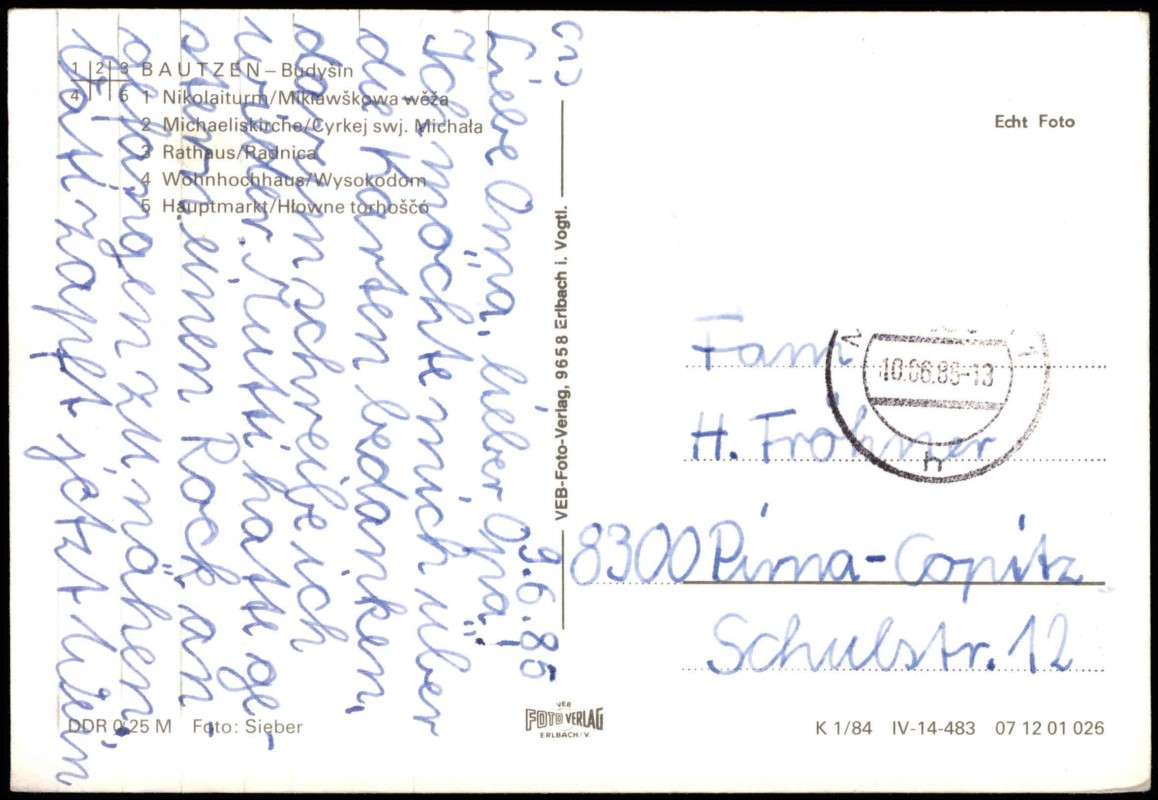 1 2 3 BAUTZEN – Budyšin
4 5 1 Nikolaiturm/Mikławškowa wěža
2 Michaeliskirche/Cyrkej swj. Michała
3 Rathaus/Radnica
4 Wohnhochhaus/Wysokodom
5 Hauptmarkt/Hłowne torhošćo
(1) 9.6.85
Liebe Oma, lieber Opa!
Ich möchte mich über
die Karten bedanken,
darum schreibe ich
wieder. Mutti hatte ge-
stern einen Rock an-
gefangen zu nähen.
Vati zapft jetzt Wein
VEB-Foto-Verlag, 9658 Erlbach i. Vogtl.
Echt Foto
Fam
H. Fröhner
8300 Pirna-Copitz
Schulstr. 12
h
DDR 0,25 M Foto: Sieber
VEB
FOTO VERLAG
ERLBACH/V.
K 1/84 IV-14-483 07 12 01 026